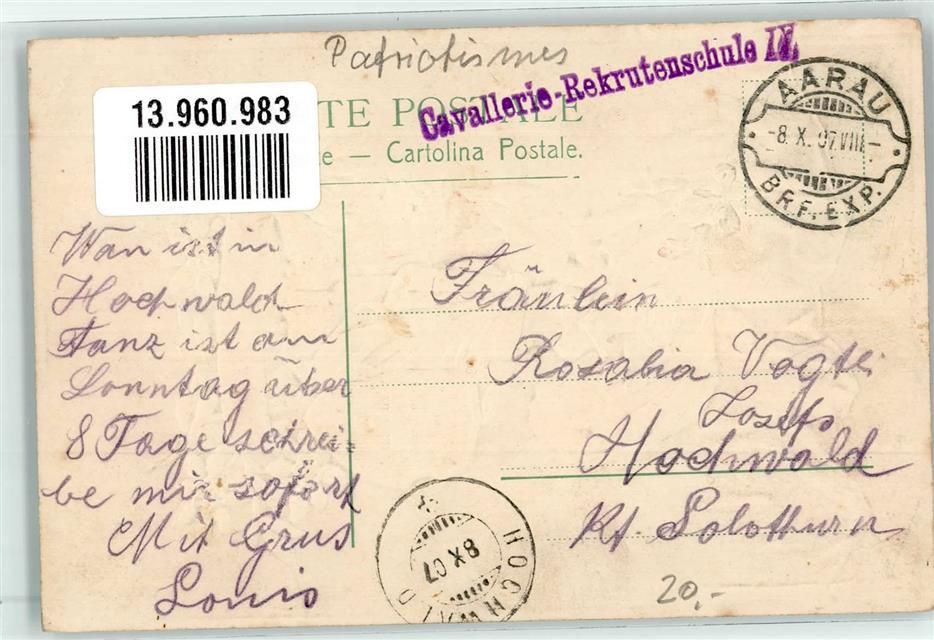 Patriotismes
Cavallerie-Rekrutenschule IV.
13.960.983
TE POSTALE
e — Cartolina Postale.
AARAU
-8.X.07.VIII-
BRF.EXP.
Wan ist in
Hochwald
Tanz ist am
Sonntag über
8 Tage schrei=
be mir sofort
Mit Grus
Louis
Fräulein
Rosalia Vögtli
Josefs
Hochwald
Kt. Solothurn
HOCHWALD
8 X 07
20,-